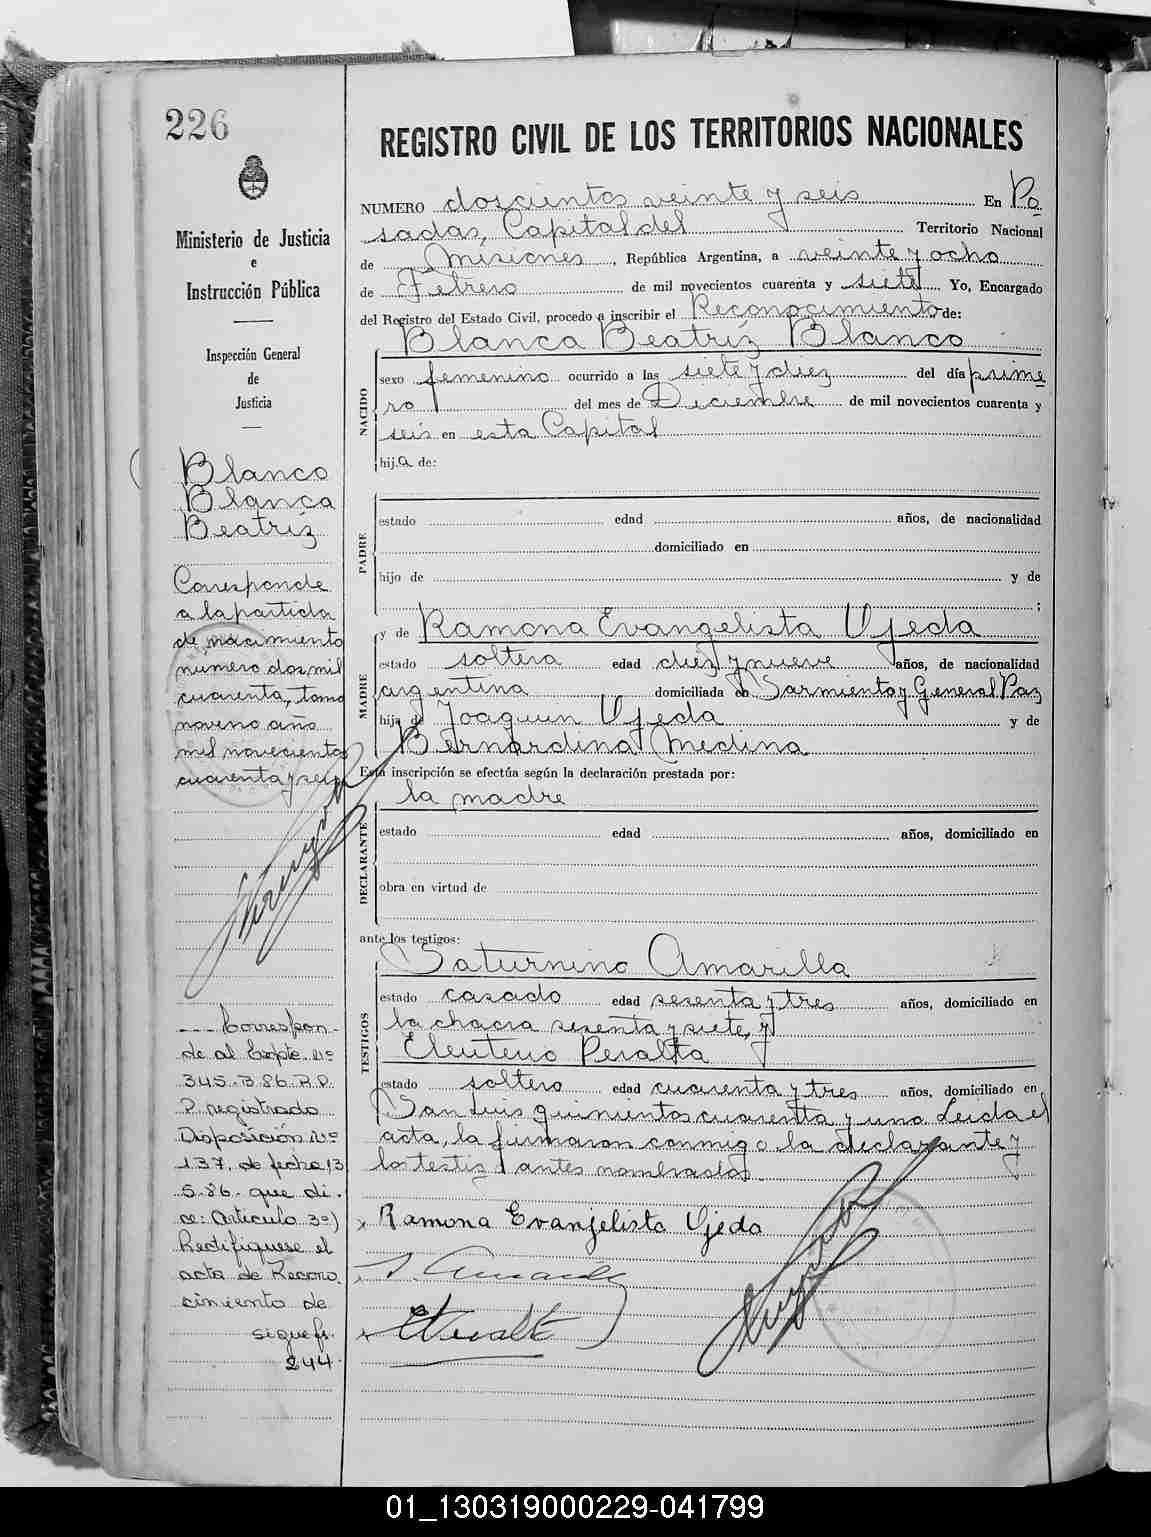 226
Ministerio de Justicia
e
Instrucción Pública
Inspección General
de
Justicia
Blanco
Blanca
Beatriz
Corresponde
a la partida
de nacimiento
numero dos mil
cuarenta, tomo
noveno año
mil novecientos
cuarenta y seis
--- Correspon-
de al Expte. Nº
345-B-86-R.P.
P. registrado
Disposición Nº
137, de fecha 13
5-86- que di-
ce: Artículo 3º)
Rectifiquese el
acta de Recono-
cimiento de
sigue fs.
244.
REGISTRO CIVIL DE LOS TERRITORIOS NACIONALES
NUMERO doscientos veinte y seis En Po
sadas, Capital del Territorio Nacional
de Misiones, República Argentina, a veinte y ocho
de Febrero de mil novecientos cuarenta y siete Yo, Encargado
del Registro del Estado Civil, procedo a inscribir el Reconocimiento de:
Blanca Beatriz Blanco
NACIDO
sexo femenino ocurrido a las siete y diez del día prime
ro del mes de Diciembre de mil novecientos cuarenta y
seis en esta Capital
hij.a de:
PADRE
estado edad años, de nacionalidad
domiciliado en
hijo de y de
;
y de Ramona Evangelista Ojeda
MADRE
estado soltera edad diez y nueve años, de nacionalidad
argentina domiciliada en Sarmiento y General Paz
hija de Joaquin Ojeda y de
Bernardina Medina
Esta inscripción se efectúa según la declaración prestada por:
la madre
DECLARANTE
estado edad años, domiciliado en
obra en virtud de
ante los testigos:
Saturnino Amarilla
TESTIGOS
estado casado edad sesenta y tres años, domiciliado en
la chacra sesenta y siete, y
Eleuterio Peralta
estado soltero edad cuarenta y tres años, domiciliado en
San Luis quinientos cuarenta y uno Leida el
acta, la firmaron conmigo la declarante y
los testigos antes nombrados.
x Ramona Evanjelista Ojeda
01_130319000229-041799